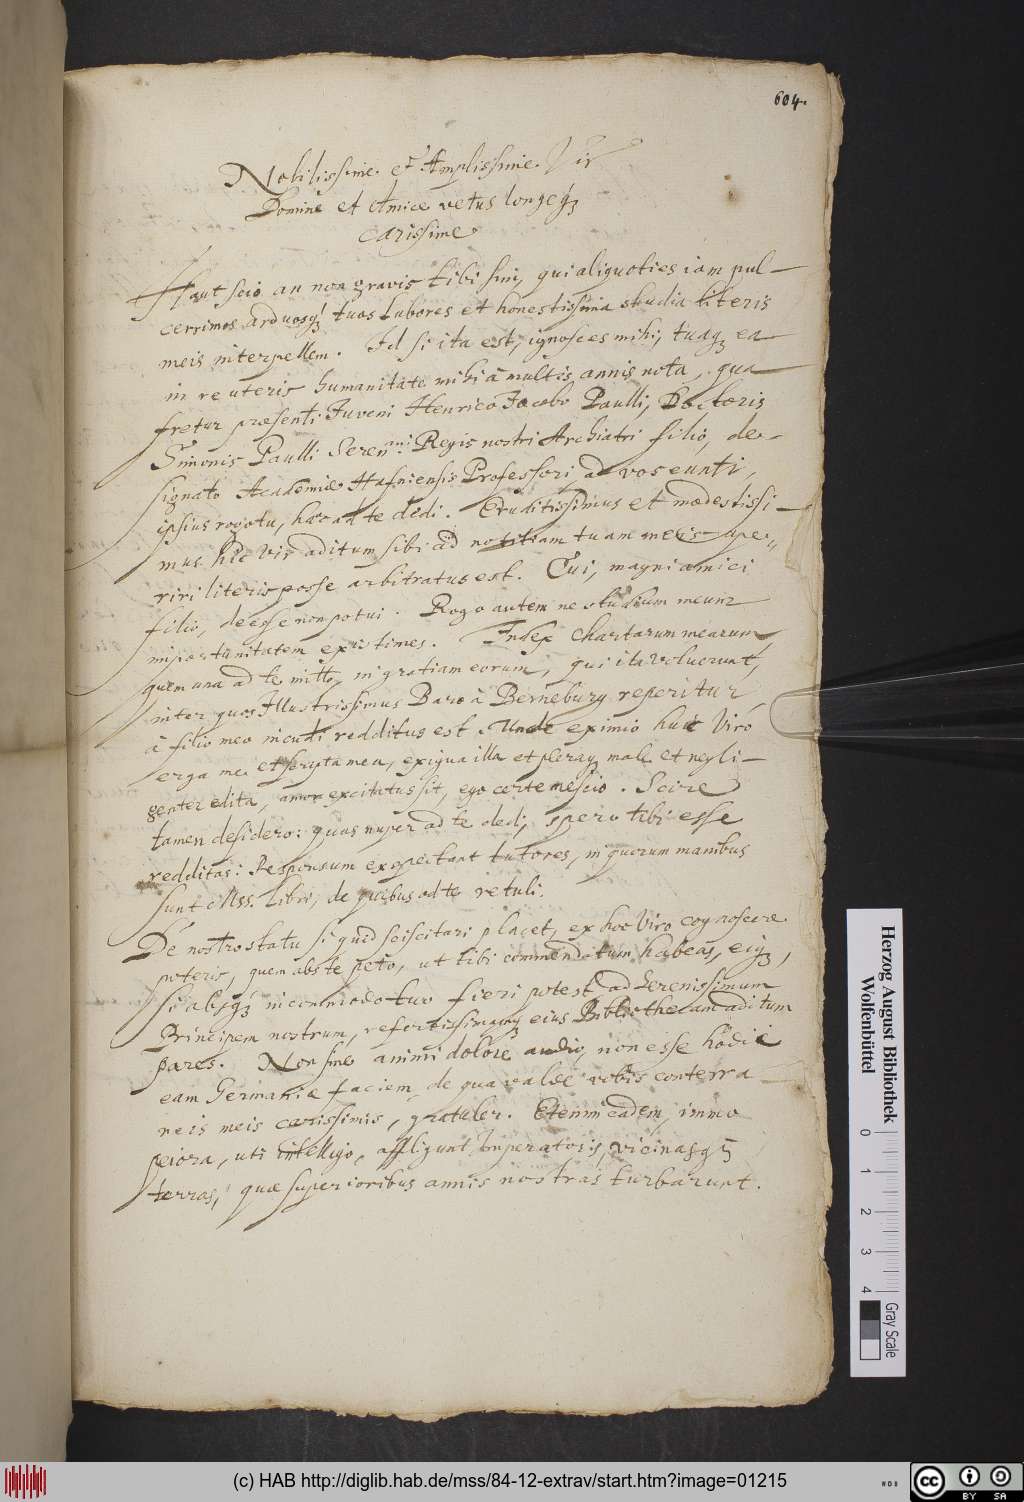 604.
Nobilissime et Amplissime Vir
Domine et Amice vetus longeq3
carissime
Haut scio an non gravis tibi sim, qui aliquoties iam pul-
cerrimos arduosq3 tuos labores et honestissima studia literis
meis interpellem. Id si ita est, ignosces mihi, tuaq3 ea
in re uteris humanitate mihi à multis annis nota, qua
fretus præsenti Iuveni Henrico Jacobo Paulli, Doctoris
Simonis Paulli Seren.mi Regis nostri Archiatri filio, de-
signato Academiæ Hafniensis Professori, ad vos eunti,
ipsius rogatu, has ad te dedi. Eruditissimus et modestissi-
mus hic Vir aditum sibi ad notitiam tuam meis ape-
riri literis posse arbitratus est. Cui, magni amici
filio, deesse non potui. Rogo autem ne studium meum
importunitatem existimes. Index chartarum mearum
quem una ad te mitto, in gratiam eorum, qui ita voluerunt,
inter quos Illustrissimus Baro à Berneburg reperitur,
à filio meo incudi redditus est. Unde eximio huic Viro
erga me et scripta mea, exigua illa et pleraq3 male et negli-
genter edita, amor excitatus sit, ego certe nescio. Scire
tamen desidero: quas nuper ad te dedi, spero tibi esse
redditas: Responsum exspectant tutores, in quorum manibus
sunt Mss. libri, de quibus ad te retuli.
De nostro statu si quid sciscitari placet, ex hoc Viro cognoscere
poteris, quem abs te peto, ut tibi commendatum habeas, eiq3,
si absq3 incommodo tuo fieri potest, ad Serenissimum
Principem nostrum, refertissimamq3 eius Bibliothecam aditum
pares. Non sine animi dolore audio, non esse hodie
eam Germaniæ faciem, de qua valde vobis conterra
neis meis carissimis, gratuler. Etenim eadem, immo
peiora, uti intelligo, affligunt Imperatoris, vicinasq3
terras, quæ superioribus annis nostras turbarunt.
Herzog August Bibliothek
Wolfenbüttel
0 1 2 3 4
Gray Scale
(c) HAB http://diglib.hab.de/mss/84-12-extrav/start.htm?image=01215
cc BY SA